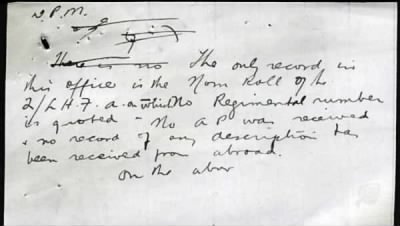 D.P.M.
There is no The only record in
this office is the Nom Roll of the
2/L.H.F. a.a. which No Regimental number
is quoted - No A P was received
& no record of any description has
been received from abroad.
On the abov